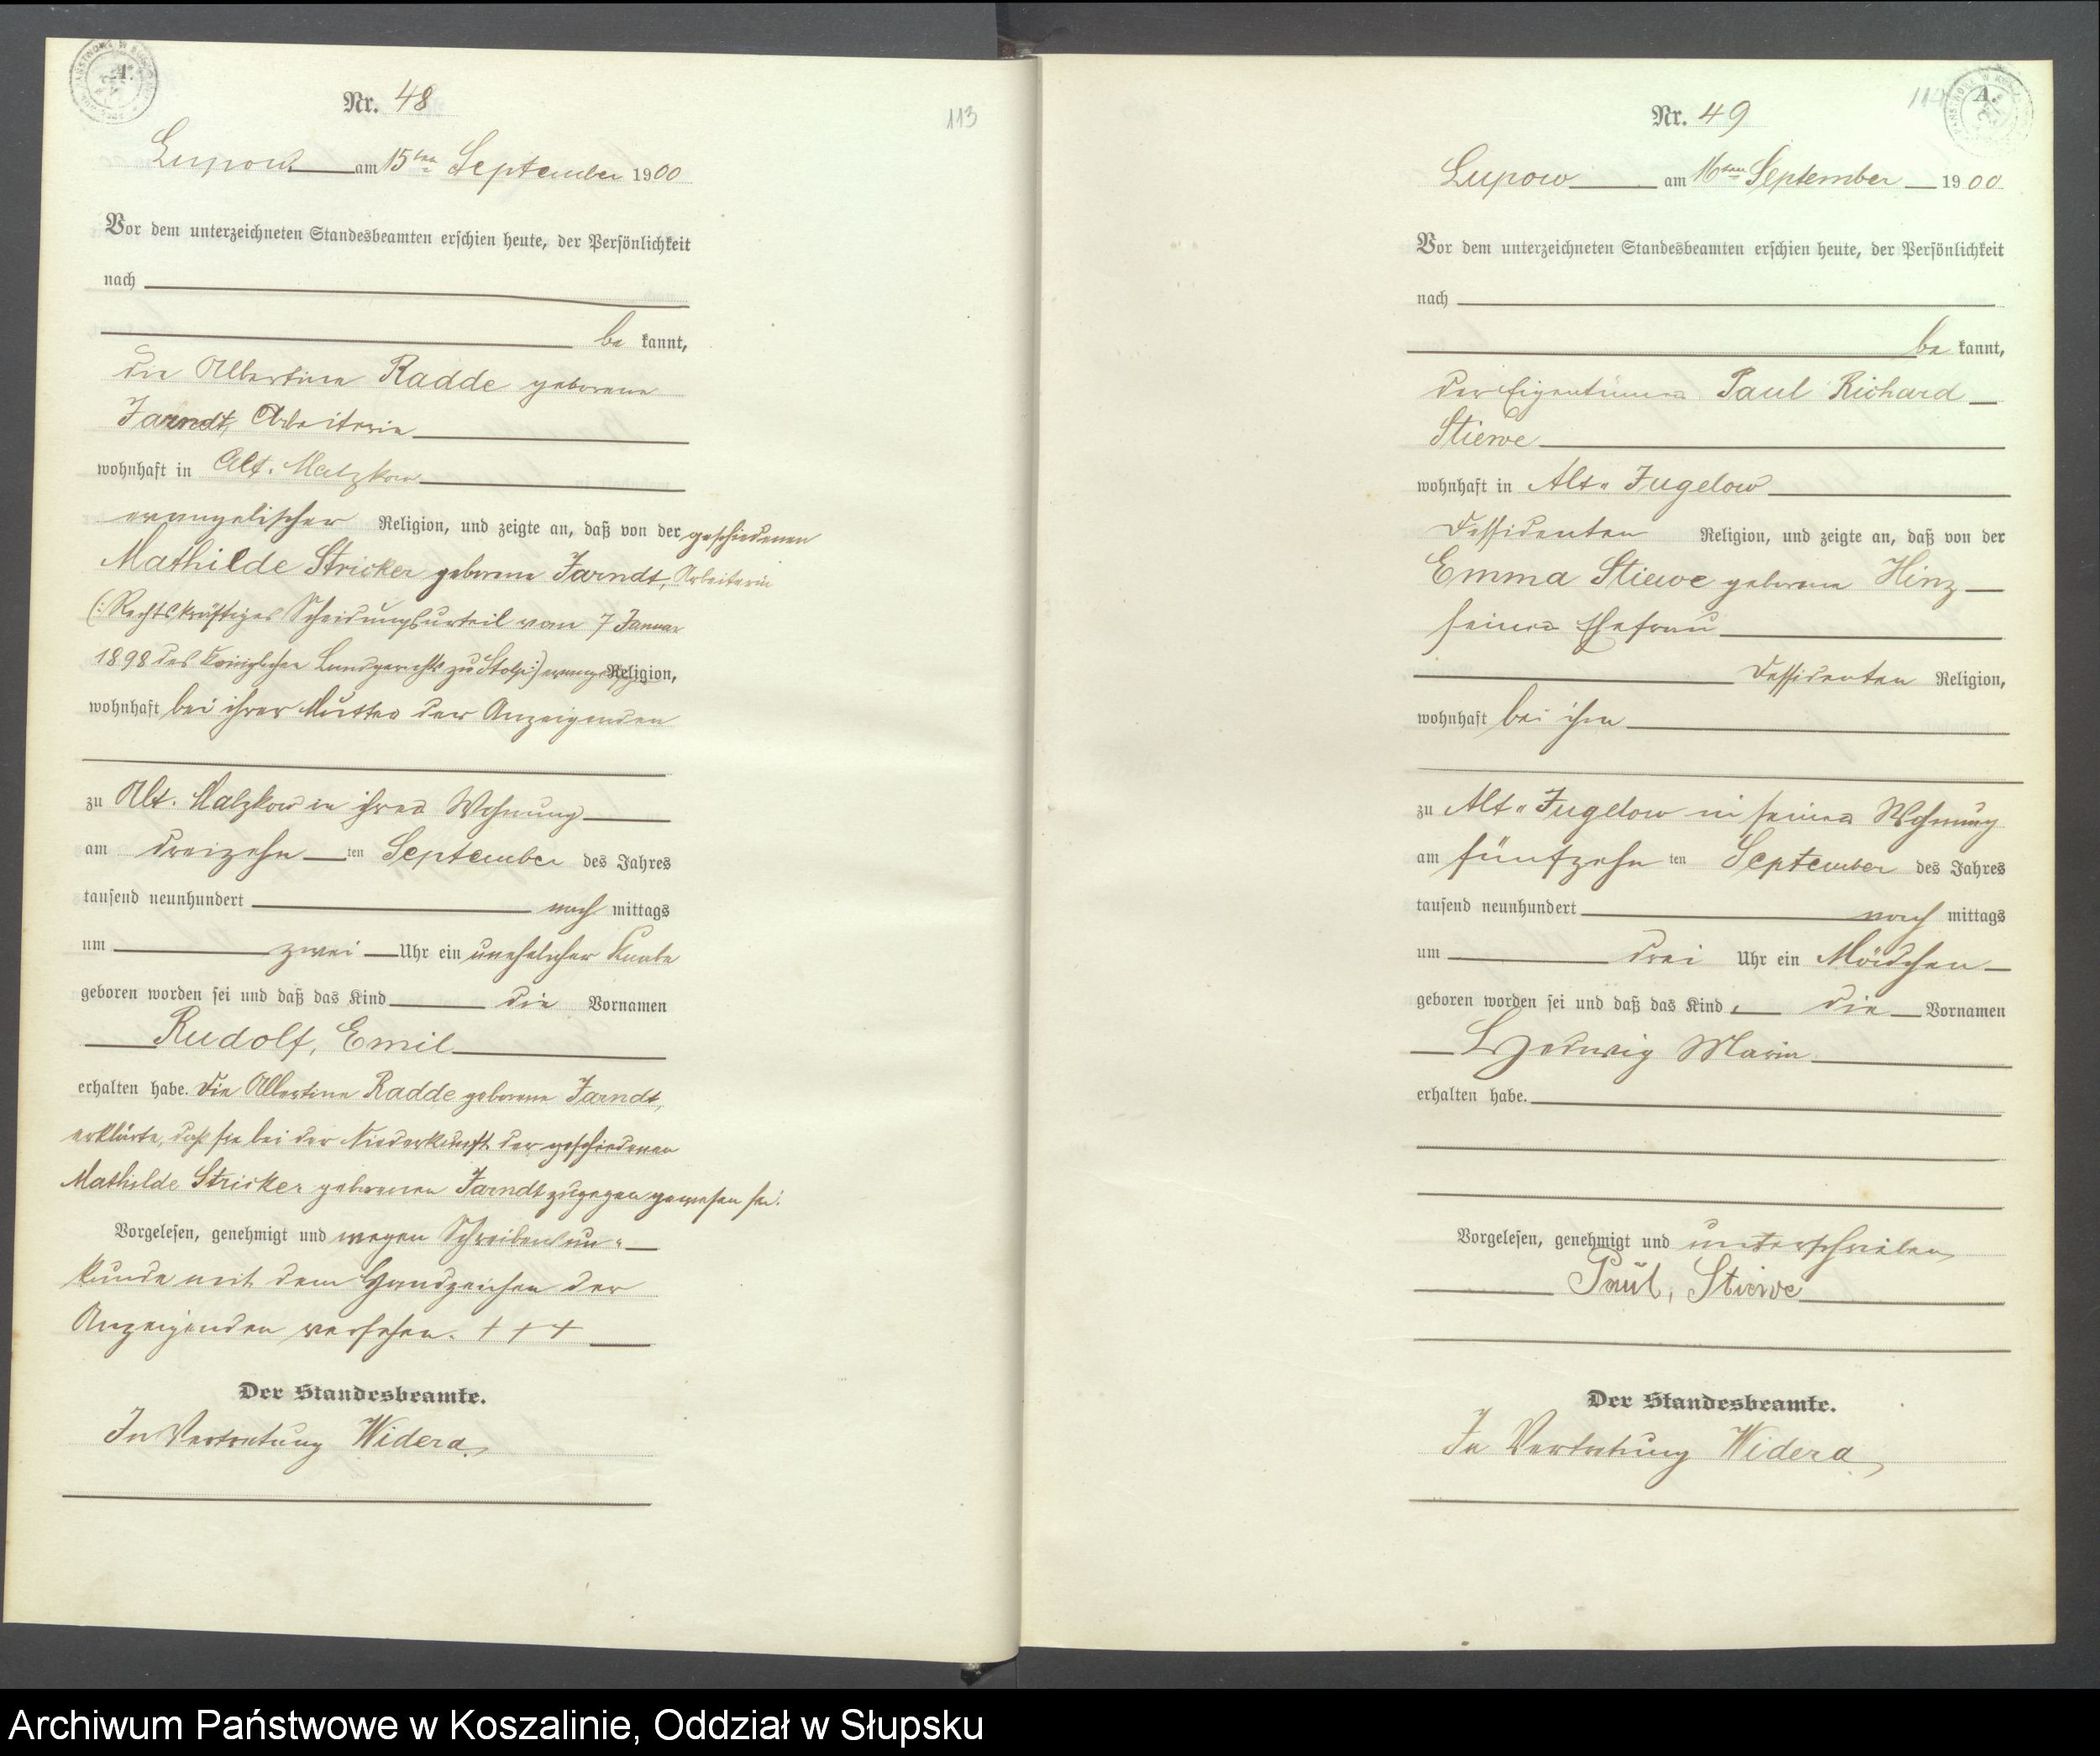 A.
Nr. 48
113
Lupow am 15ten September 1900
Vor dem unterzeichneten Standesbeamten erschien heute, der Persönlichkeit
nach
be kannt,
die Albertine Radde geborene
Jarndt, Arbeiterin
wohnhaft in Alt. Malzkow
evangelischer Religion, und zeigte an, daß von der geschiedenen
Mathilde Stricker geborene Jarndt, Arbeiterin
(: Rechtskräftiges Scheidungsurteil vom 7 Januar
1898 des Königlichen Landgerichts zu Stolp :) Religion,
wohnhaft bei ihrer Mutter der Anzeigenden
zu Alt. Malzkow in ihrer Wohnung
am dreizehn ten September des Jahres
tausend neunhundert nach mittags
um zwei Uhr ein unehelicher Knabe
geboren worden sei und daß das Kind die Vornamen
Rudolf, Emil
erhalten habe. Die Albertine Radde geborene Jarndt,
erklärte, daß sie bei der Niederkunft der geschiedenen
Mathilde Stricker geborenen Jarndt zugegen gewesen sei.
Vorgelesen, genehmigt und wegen Schreibensun-
kunde mit dem Handzeichen der
Anzeigenden versehen. + + +
Der Standesbeamte.
In Vertretung Widera
A.
Nr. 49
Lupow am 16ten September 1900
Vor dem unterzeichneten Standesbeamten erschien heute, der Persönlichkeit
nach
be kannt,
der Eigentümer Paul Richard
Stiewe
wohnhaft in Alt-Jugelow
Dissidenten Religion, und zeigte an, daß von der
Emma Stiewe geborene Hinz
seiner Ehefrau
Dissidenten Religion,
wohnhaft bei ihm
zu Alt-Jugelow in seiner Wohnung
am fünfzehn ten September des Jahres
tausend neunhundert nach mittags
um drei Uhr ein Mädchen
geboren worden sei und daß das Kind die Vornamen
Hedwig Marie
erhalten habe.
Vorgelesen, genehmigt und unterschrieben
Paul, Stiewe
Der Standesbeamte.
In Vertretung Widera
Archiwum Państwowe w Koszalinie, Oddział w Słupsku